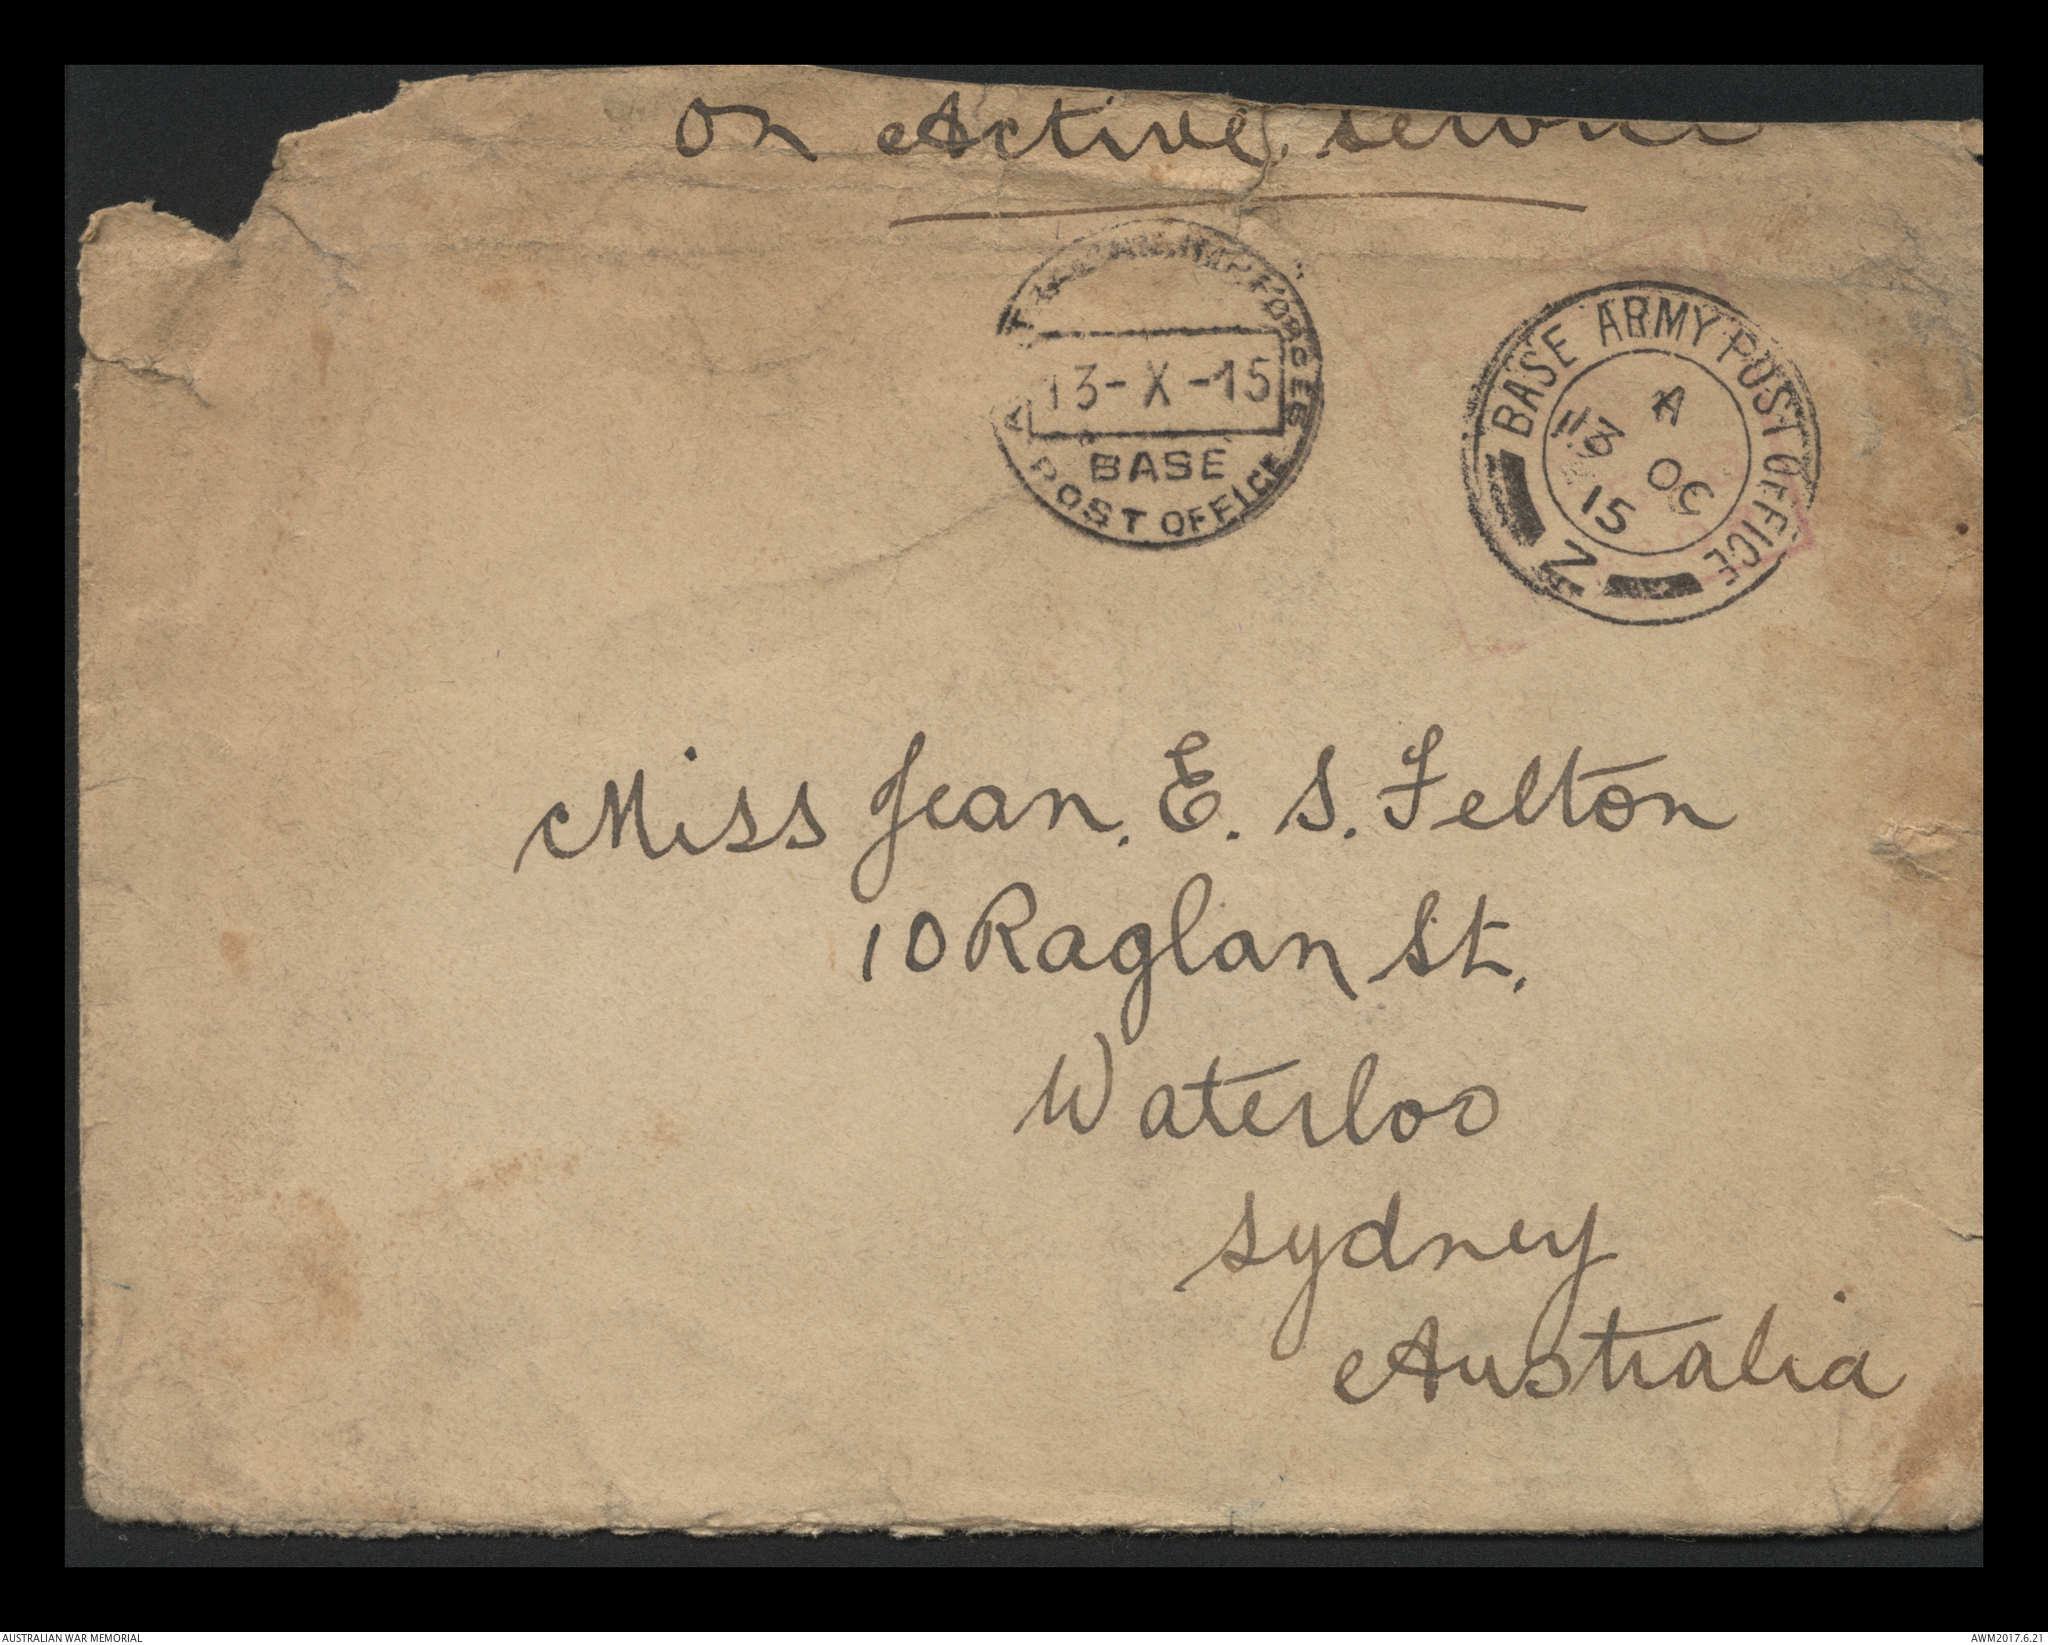 On Active service
IMP FORCES
13-X-15
BASE
POST OFFICE
BASE ARMY POST OFFICE
A
13 OC
15
Z
Miss Jean. E. S. Felton
10 Raglan St.
Waterloo
Sydney
Australia
AUSTRALIAN WAR MEMORIAL
AWM2017.6.21